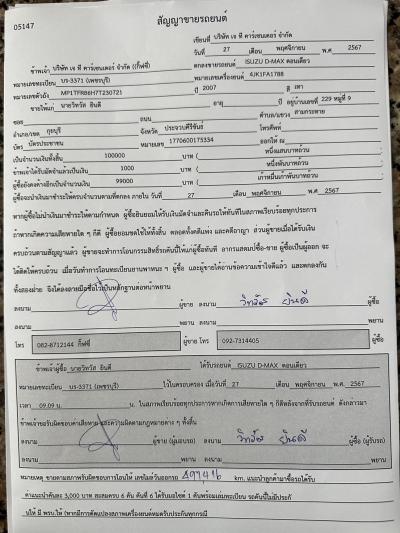 05147
สัญญาขายรถยนต์
เขียนที่ บริษัท เจ ที คาร์เซนเตอร์ จำกัด (กี้ฟซี่)
วันที่ 27 เดือน พฤศจิกายน พ.ศ. 2567
ข้าพเจ้า บริษัท เจ ที คาร์เซนเตอร์ จำกัด (กี้ฟซี่) ตกลงขายรถยนต์ ISUZU D-MAX ตอนเดียว
หมายเลขทะเบียน บร-3371 (เพชรบุรี) หมายเลขเครื่องยนต์ 4JK1FA1788
หมายเลขตัวถัง MP1TFR86H7T230721 ปี 2007 สี เทา
ขายให้แก่ นายวิทวัส ยินดี อายุ ปี อยู่บ้านเลขที่ 229 หมู่ที่ 9
ซอย ถนน ตำบล/แขวง สามกระทาย
อำเภอ/เขต กุยบุรี จังหวัด ประจวบคีรีขันธ์ โทรศัพท์
บัตร บัตรประชาชน หมายเลข 1770600175334 ออกให้ ณ
เป็นจำนวนเงินทั้งสิ้น 100000 บาท ( หนึ่งแสนบาทถ้วน
ข้าพเจ้าได้รับมัดจำแล้วเป็นเงิน 1000 บาท ( หนึ่งพันบาทถ้วน
ผู้ซื้อยังคงค้างอีกเป็นจำนวนเงิน 99000 บาท ( เก้าหมื่นเก้าพันบาทถ้วน
ผู้ซื้อจะนำเงินมาชำระให้ครบจำนวนตามที่ตกลง ภายใน วันที่ 27 เดือน พฤศจิกายน พ.ศ. 2567
หากผู้ซื้อไม่นำเงินมาชำระตามกำหนด ผู้ซื้อยินยอมให้ริบเงินมัดจำและคืนรถให้ทันทีในสภาพเรียบร้อยทุกประการ
ถ้าหากเกิดความเสียหายใด ๆ ก็ดี ผู้ซื้อยอมชดใช้ให้ทั้งสิ้น ตลอดทั้งคดีแพ่ง และคดีอาญา ส่วนผู้ขายเมื่อได้รับเงิน
ครบถ้วนตามสัญญาแล้ว ผู้ขายจะทำการโอนกรรมสิทธิ์รถคันนี้ให้แก่ผู้ซื้อทันที อากรแสตมป์ซื้อ-ขาย ผู้ซื้อเป็นผู้ออก จะ
ได้ติดให้ครบถ้วน เมื่อวันทำการโอนทะเบียนยานพาหนะ ๆ ผู้ซื้อ และผู้ขายได้อ่านข้อความเข้าใจดีแล้ว และตกลงกัน
ทั้งสองฝ่าย จึงได้ลงลายมือชื่อไว้เป็นหลักฐานต่อหน้าพยาน
ลงนาม ผู้ขาย ลงนาม วิทวัส ยินดี ผู้ซื้อ
ลงนาม พยาน ลงนาม พยาน
โทร 082-8712144 กี้ฟซี่ ผู้ขาย โทร 092-7314405 ผู้ซื้อ
ข้าพเจ้าผู้ซื้อ นายวิทวัส ยินดี ได้รับรถยนต์ ISUZU D-MAX ตอนเดียว
หมายเลขทะเบียน บร-3371 (เพชรบุรี) ไว้ในครอบครอง เมื่อวันที่ 27 เดือน พฤศจิกายน พ.ศ. 2567
เวลา 09.09 น. น. ในสภาพเรียบร้อยทุกประการหากเกิดการเสียหายใด ๆ ก็ดีหลังจากที่รับรถยนต์ ดังกล่าวมา
ข้าพเจ้าขอรับผิดชอบค่าเสียหาย และความผิดตามกฎหมายต่าง ๆ ทั้งสิ้น
ลงนาม ผู้ขาย (ผู้มอบรถ) ลงนาม วิทวัส ยินดี ผู้ซื้อ (ผู้รับรถ)
ลงนาม พยาน ลงนาม พยาน
หมายเหตุ ขายตามสภาพรับผิดชอบการโอนให้ เลขไมล์วันออกรถ km. แนะนำลูกค้ามาซื้อรถได้รับ
ค่าแนะนำคันละ 3,000 บาท สะสมครบ 6 คัน คันที่ 6 ได้รับมอไซค์ 1 คันพร้อมเล่มทะเบียน รถคันนี้ไม่มีประกั
นให้ มี พรบ.ให้ (หากมีการดัดแปลงสภาพเครื่องยนต์หมดรับประกันทุกกรณี